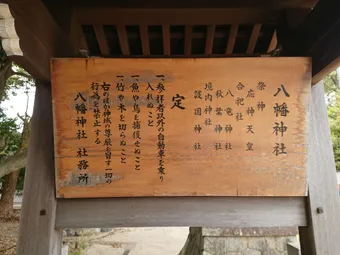 八幡神社
祭神
応神天皇
合祀社
八竜神社
秋葉神社
境内神社
護国神社
定
一、参拝者以外の自動車を乗り
入れぬこと
一、魚や鳥を捕獲せぬこと
一、竹や木を切らぬこと
右のほか神域の尊厳を冒す一切の
行為を禁止する
八幡神社 社務所